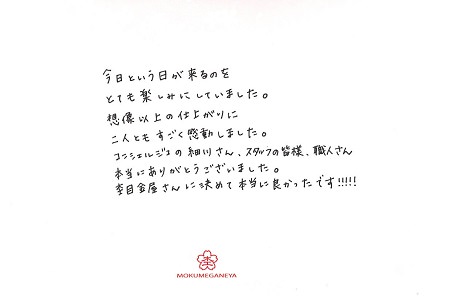 今日という日が来るのを
とても楽しみにしていました。
想像以上の仕上がりに
二人ともすごく感動しました。
コンシェルジュの細川さん、スタッフの皆様、職人さん
本当にありがとうございました。
杢目金屋さんに決めて本当に良かったです!!!!!
MOKUMEGANEYA